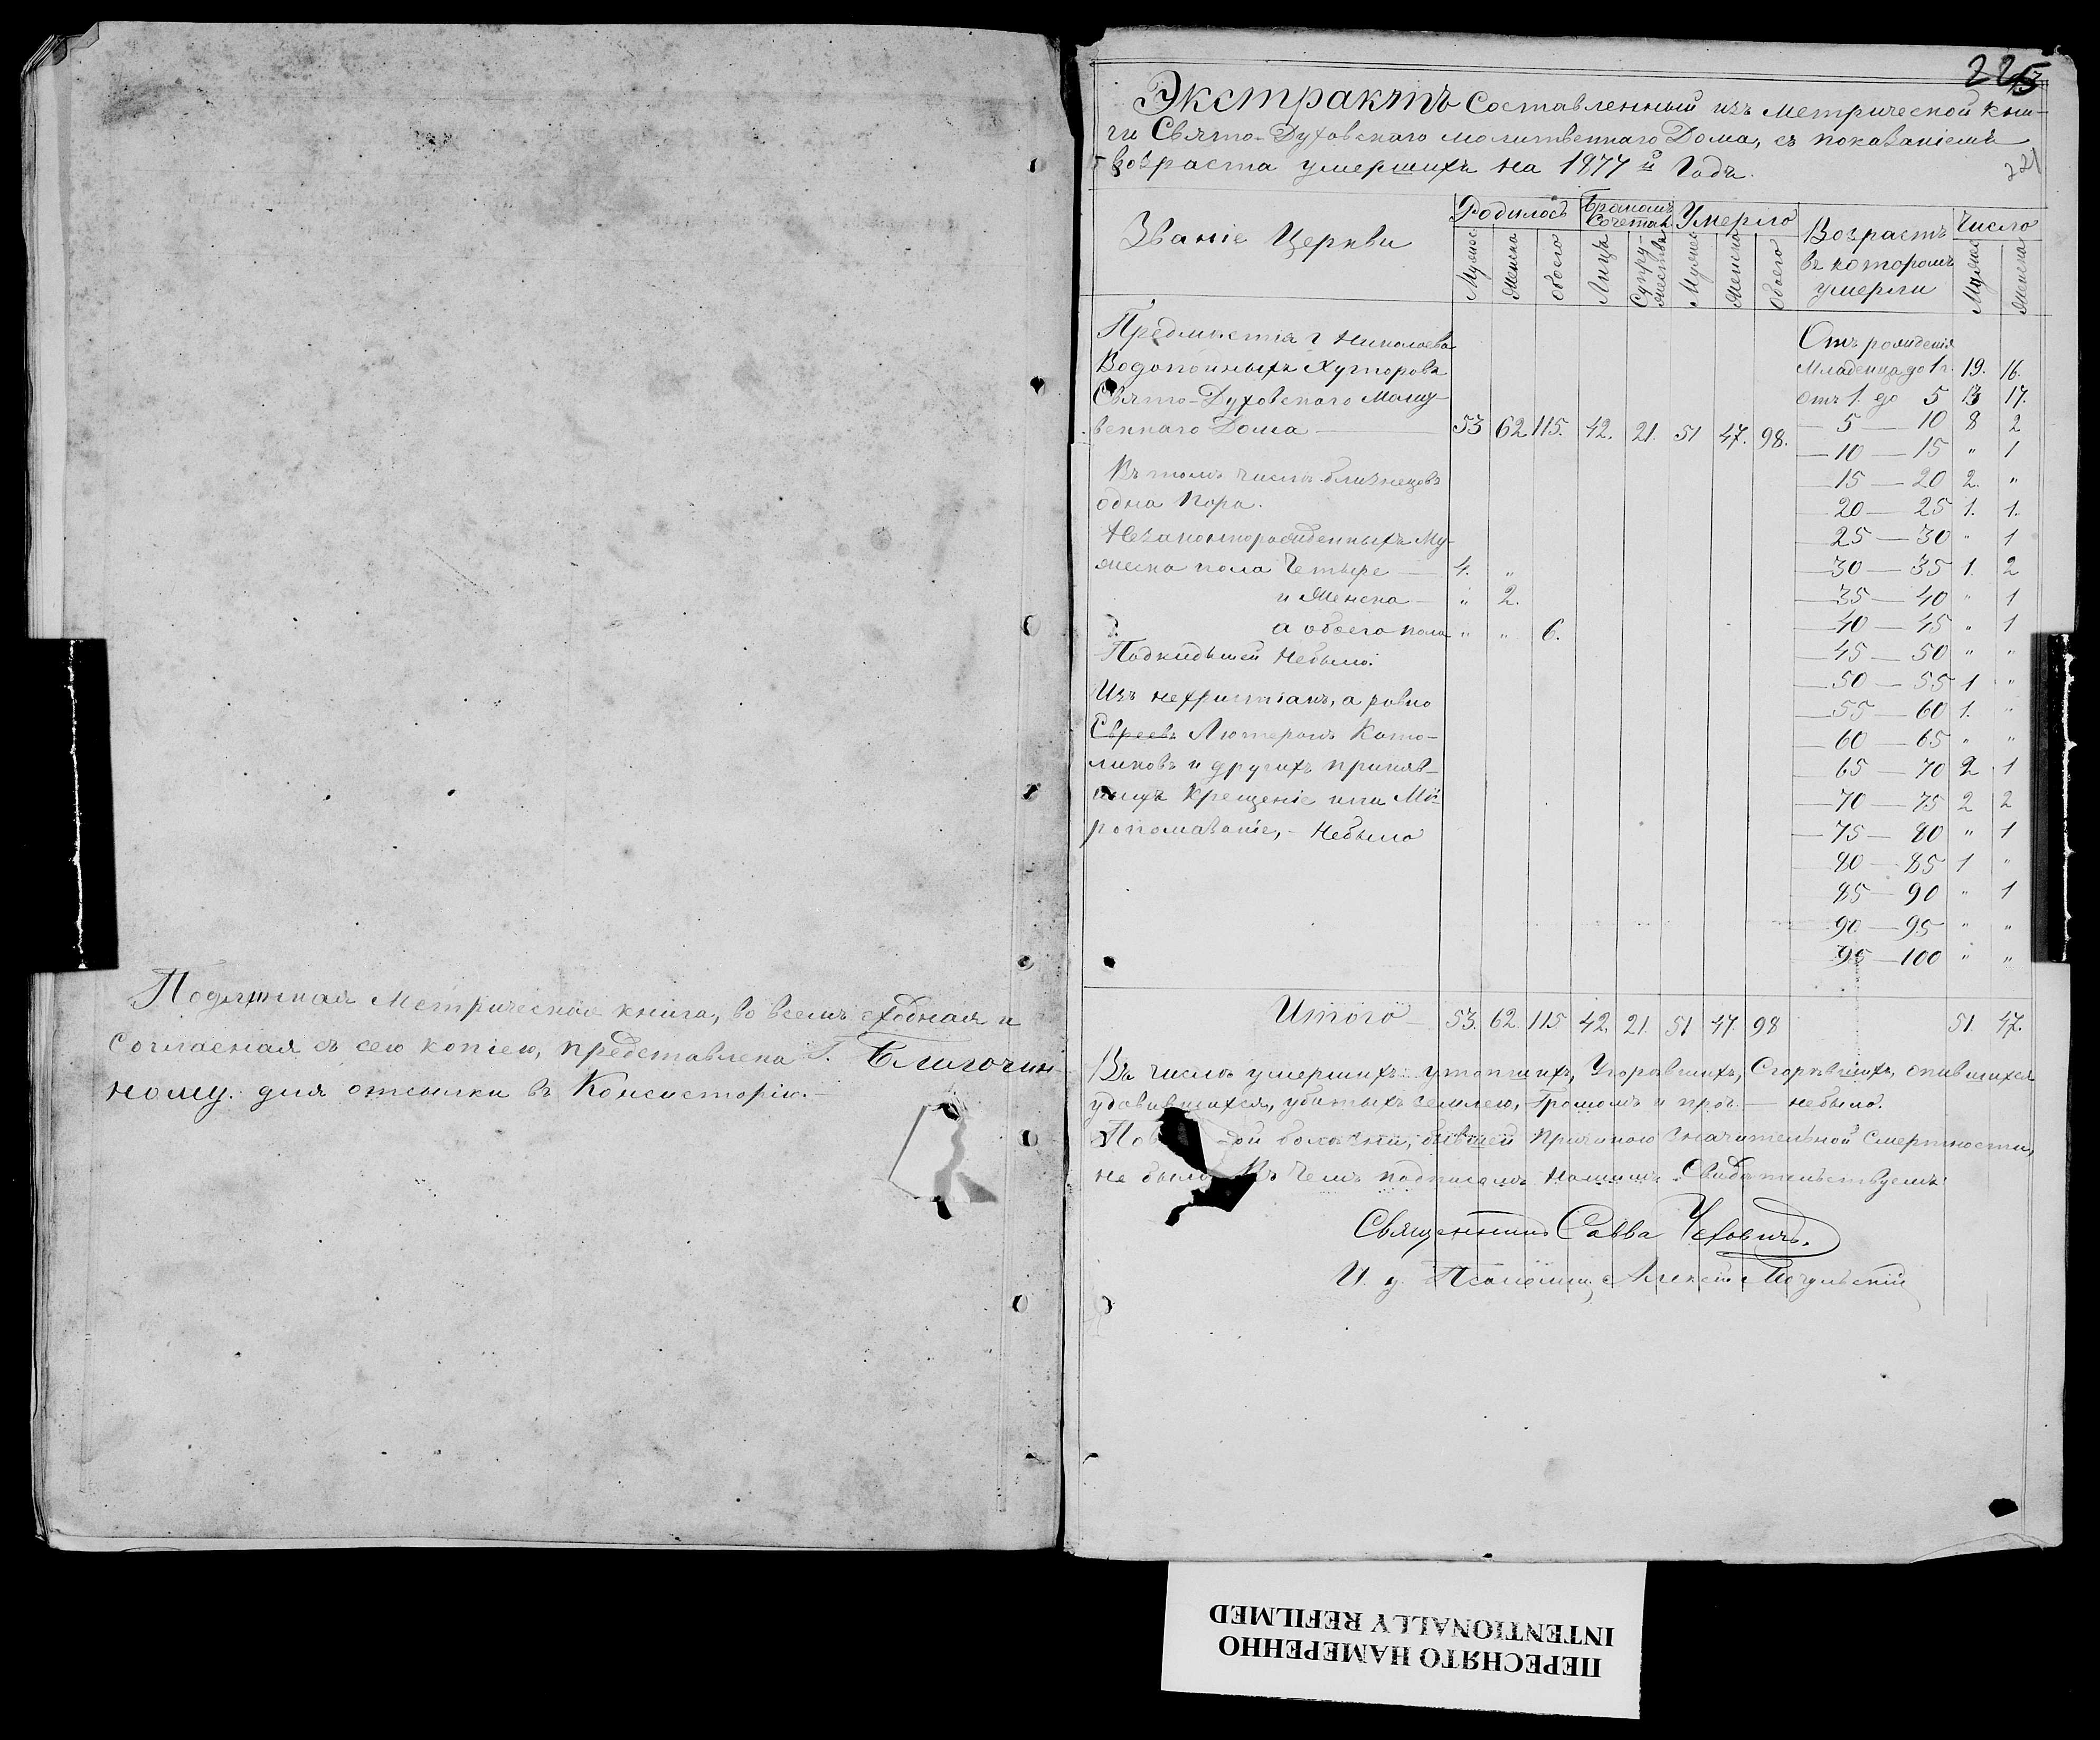 Подлинная Метрическая книга, во всемъ сходная и
согласная съ сею копіею, представлена Г. Благочин
ному для отсылки въ Консисторію.
225
Экстрактъ составленный изъ метрической кни-
ги Свято-Духовскаго молитвеннаго Дома, съ показаніемъ
возраста умершихъ на 1877й Годъ.
221
Званіе Церкви
Родилось
Бракомъ Сочетал
Умерло
Возрастъ въ которомъ умерли
Число
Мужес Женска Обоего Лицъ Супружества Мужес Женска Обоего Мужес Женска
Предмѣстья г Николаева
Водопойныхъ Хуторовъ
Свято-Духовскаго Молит-
веннаго Дома — 53 62 115. 42. 21. 51 47. 98.
Въ томъ числѣ близнецовъ
одна пара.
Незаконнорожденныхъ Му-
жеска пола Четыре — 4. "
и Женска — " 2.
а обоего пола " " 6.
Подкидышей небыло.
Изъ нехристіанъ, а равно
Евреевъ Лютеранъ Като-
ликовъ и другихъ приняв-
шихъ крещеніе или Мѵ-
ропомазаніе, - Небыло
Отъ рожденія
Младенца до 1 г. 19. 16.
Отъ 1. до 5 13 17.
5 — 10 8 2
10 — 15 " 1
15 — 20 2. "
20 — 25 1. 1.
25 — 30 " 1
30 — 35 1. 2
35 — 40 " 1
40 — 45 " 1
45 — 50 " "
50 — 55 1 "
55 — 60 1. "
60 — 65 " "
65 — 70 2 1
70 — 75 2 2
75 — 80 " 1
80 — 85 1 "
85 — 90 " 1
90 — 95 " "
95 — 100 " "
Итого 53. 62. 115 42. 21. 51 47 98 51. 47.
Въ числѣ умершихъ: утопшихъ, Угорѣвшихъ, Сгорѣвшихъ, опившихся
удавившихся, убитыхъ землею, Громомъ и проч. — небыло.
ой болѣзни, бывшей причиною значительной смертности,
не было. Въ чемъ подписомъ нашимъ Свидѣтельствуемъ
Священникъ Савва Чеховичъ.
И. д. Псаломщ. Алексій Мочульскій
ПЕРЕСНЯТО НАМЕРЕННО
INTENTIONALLY REFILMED